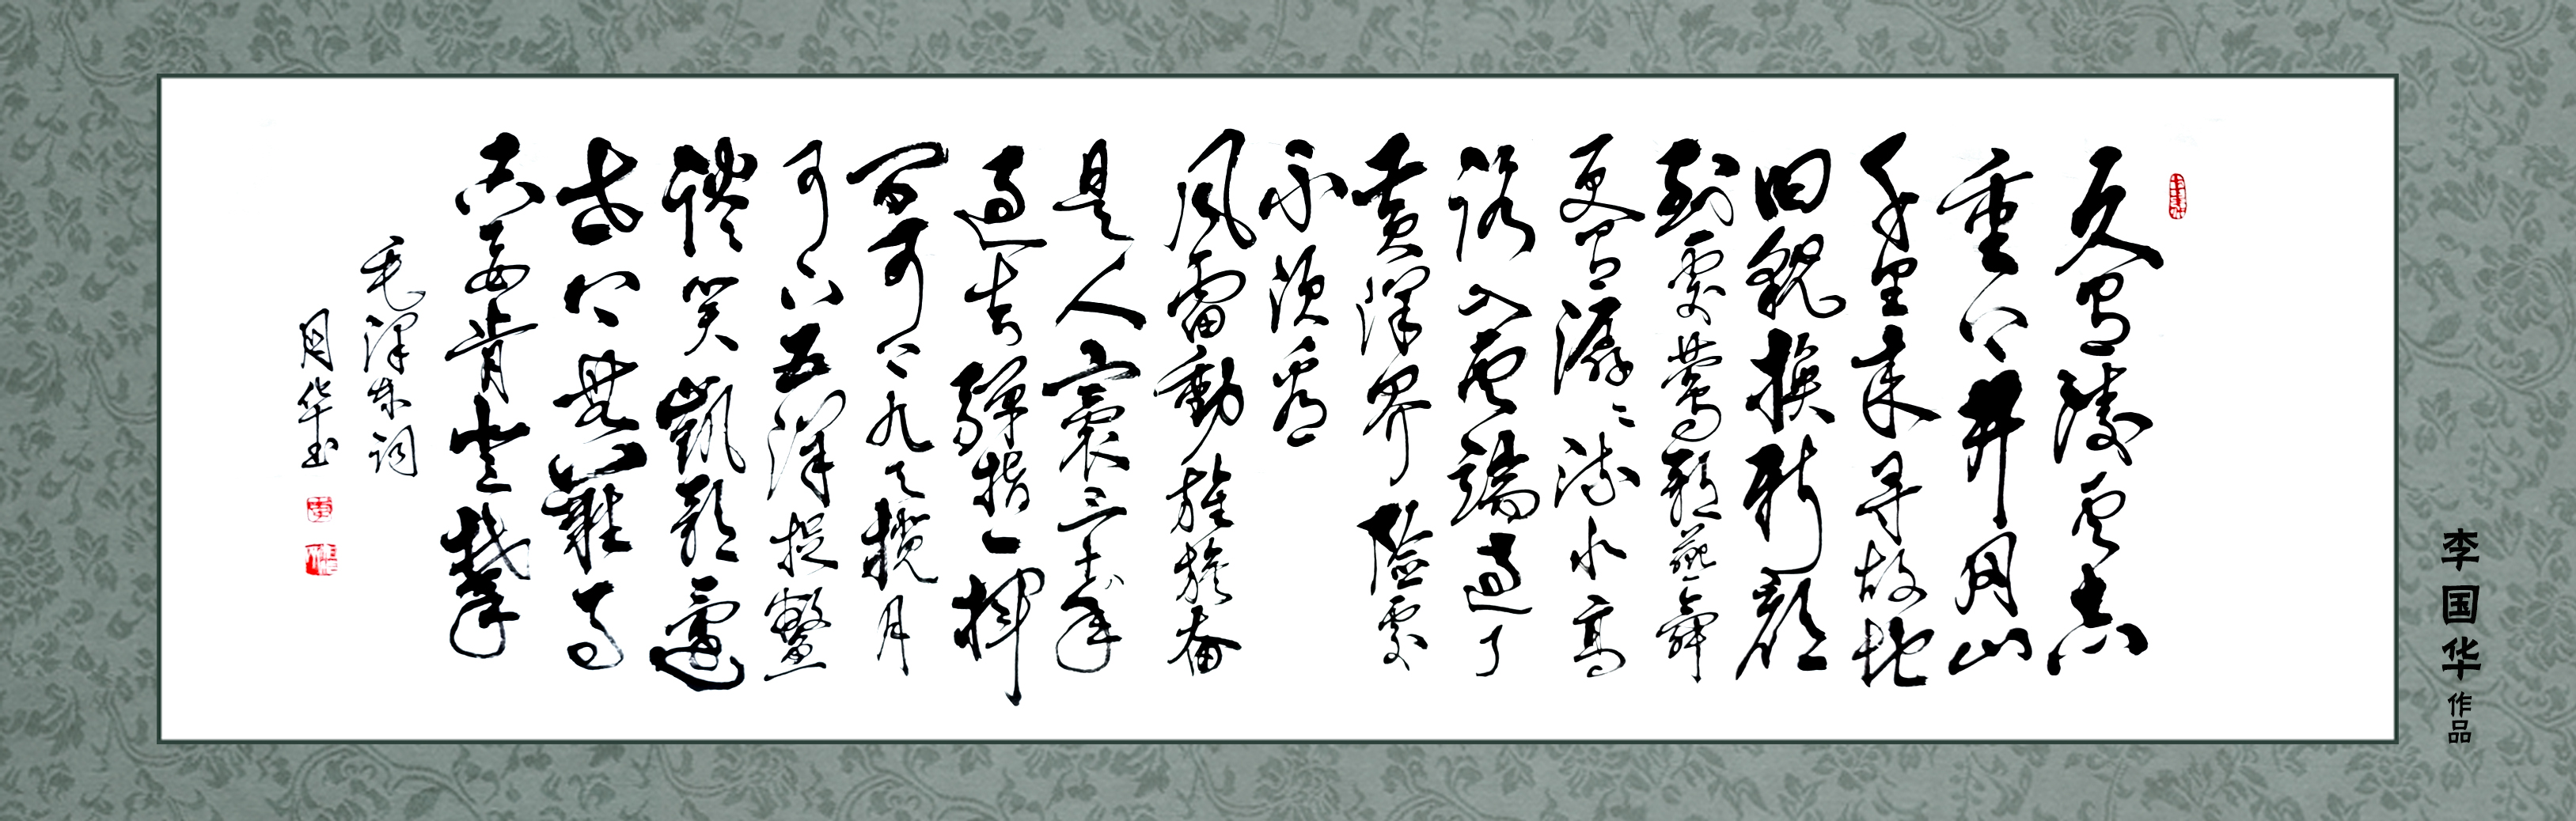 久有凌云志
重上井冈山
千里来寻故地
旧貌换新颜
到处莺歌燕舞
更有潺潺流水高
路入云端过了
黄洋界险处
不须看
风雷動旌旗奋
是人寰三十八年
过去弹指一挥
间可上九天揽月
可下五洋捉鳖
谈笑凯歌还
世上无難事
只要肯登攀
毛泽东词
国华书
李国华作品